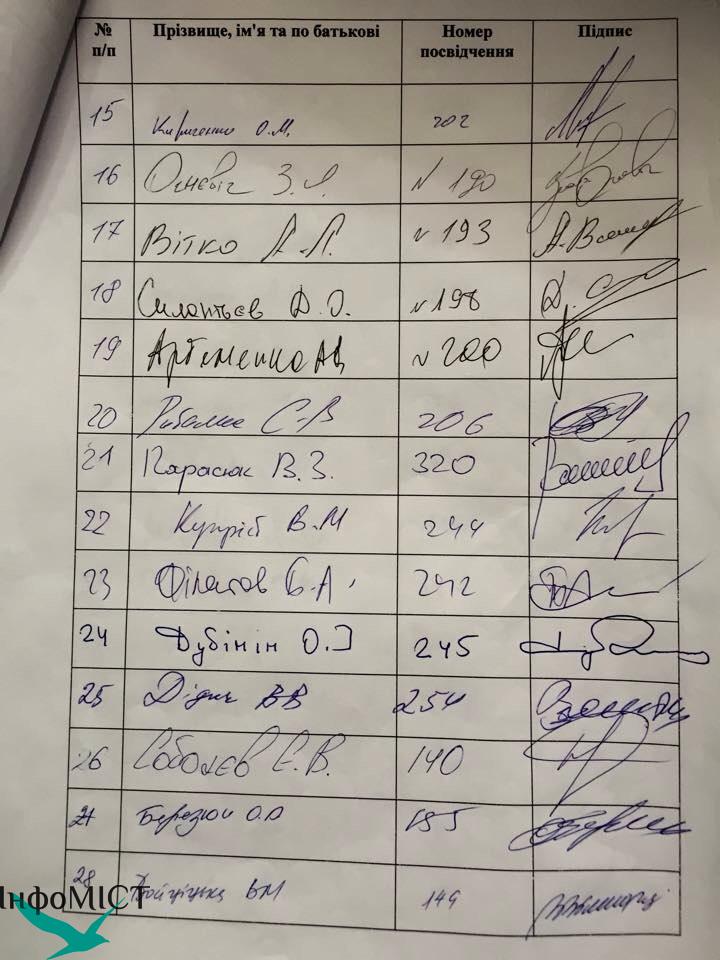 № п/п Прізвище, ім'я та по батькові Номер посвідчення Підпис
15 О.М. 202
16 З.Я. № 190
17 Вітко А.Л. № 193
18 Силантьєв Д.О. № 198
19 Артеменко № 200
20 С.В 206
21 Парасюк В.З. 320
22 Купрієв В.М 244
23 Філатов Б.А. 242
24 Дубінін О.І 245
25 Дідич ВВ 254
26 Соболєв Є.В. 140
27 Березюк О.Р 185
28 ВМ 149
ІнфоМІСТ